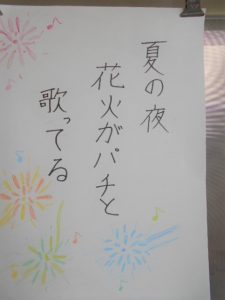 夏の夜
花火がパチと
歌ってる